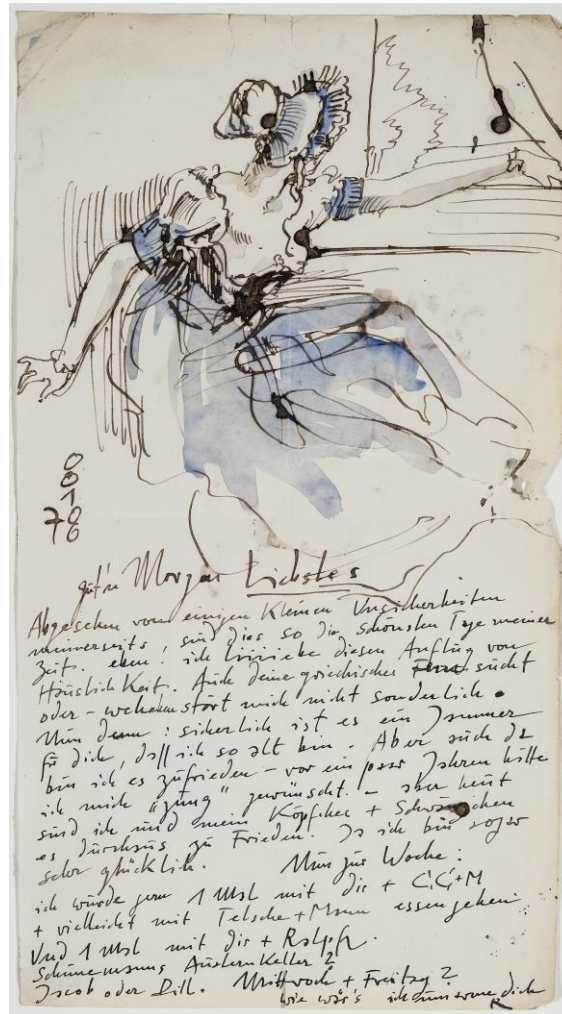 0
0
1
0
76
gut'n Morgen Liebstes
Abgesehen von einigen Kleinen Unsicherheiten
meinerseits, sind dies so die schönsten Tage meiner
Zeit. eben: ich liiiiebe diesen Anflug von
Häuslichkeit. Auch deine griechisches sucht
oder – stört mich nicht sonderlich.
Nun denn: sicherlich ist es ein Jammer
für dich, daß ich so alt bin. Aber auch da
bin ich es zufrieden – vor ein paar Jahren hätte
ich mich "jung" gewünscht. – aber heut
sind ich und mein Köpfchen + Schwänzchen
es durchaus zu Frieden. Ja ich bin sogar
sehr glücklich. Nun zur Woche:
ich würde gern 1 Mal mit dir + C, C + M
+ vielleicht mit Telsche + Mann essen gehen
Und 1 Mal mit dir + Ralph.
Schünemanns Austernkeller?
Jacob oder Dill. Mittwoch + Freitag?
wie wär's ich dich